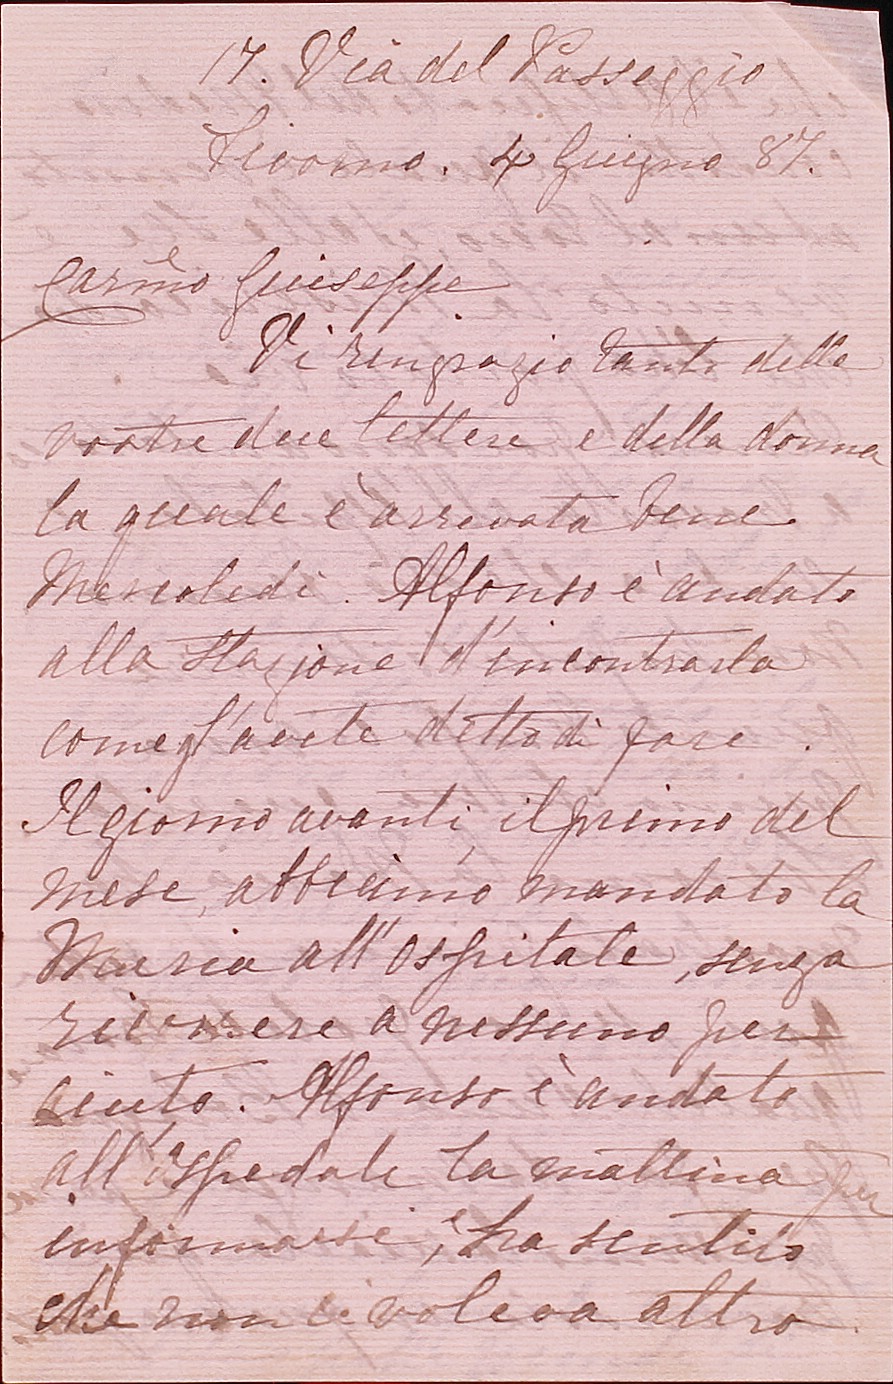 17. Via del Passeggio
Livorno. 4 Giugno 87.
Carmo Giuseppe
Vi rengrazio tanto delle
vostre due lettere e della donna
la quale è arrevata bene
Mercoledi. Alfonso è andato
alla Stazione d'incontrarla
come gl'avete detto di fare.
Il giorno avanti, il primo del
mese, abbiamo mandato la
Maria all'ospitale, senza
ricorrere a nessuno per
aiuto. Alfonso è andato
all'ospedale la mattina per
informarsi, e ha sentito
che non ci voleva altro